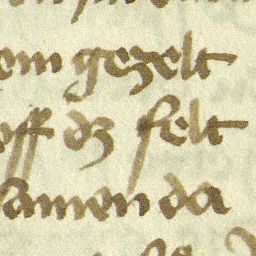 em gezelt
eff dz felt
samen da